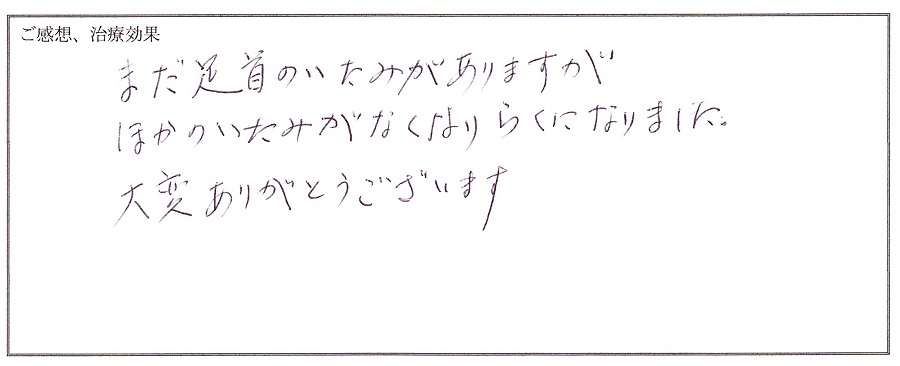 ご感想、治療効果
まだ足首のいたみがありますが
ほかのいたみがなくなりらくになりました。
大変ありがとうございます